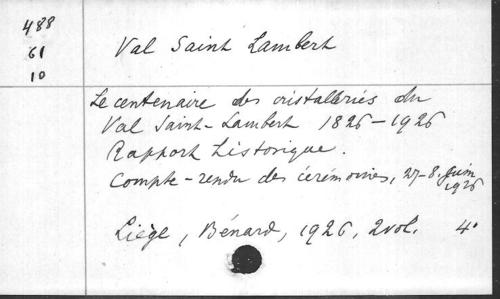 488
61
10
Val Saint Lambert
Le centenaire des cristalleries du
Val Saint-Lambert 1826-1926
Rapport historique.
Compte-rendu des cérémonies, 27-8 juin
1926
Liège, Bénard, 1926, 2 vol. 4°